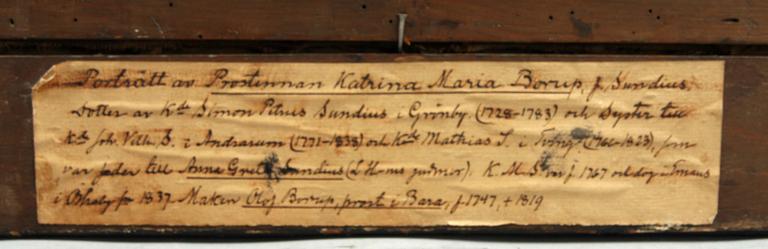 Porträtt av Prostinnan Katrina Maria Borup, f. Sundius,
dotter av Kh Simon Petrus Sundius i Grönby. (1728-1783) och Syster till
Kh Joh. Vilh. S. i Andrarum (1771-1838) och Kh Mathias S. i Tving,
var fader till Anna Greta Sundius K. M. S. var f. 1767 och dog i
i 1837. Maken Olof Borup, prost i Bara, f. 1747, + 1819